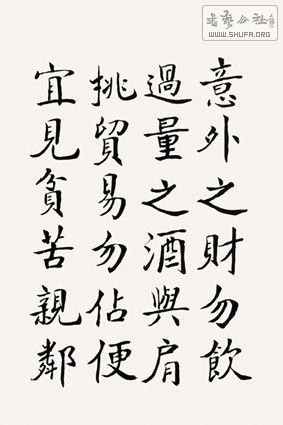 書藝公社
WWW.SHUFA.ORG
意外之財勿飲
過量之酒與肩
挑貿易勿佔便
宜見貧苦親鄰